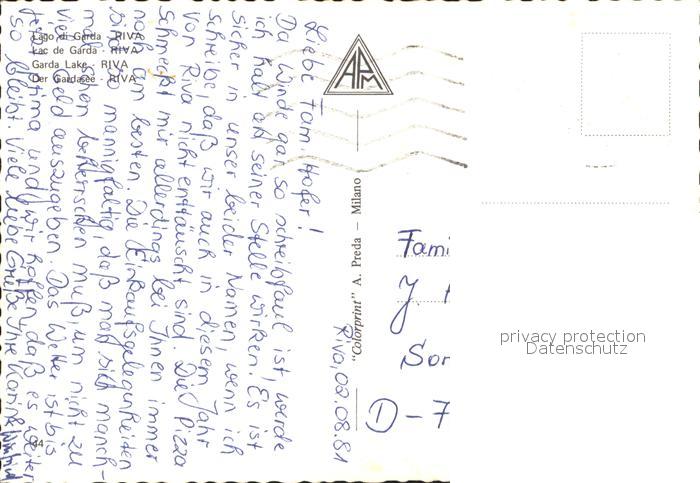 Lago di Garda - RIVA
Lac de Garda - RIVA
Garda Lake - RIVA
Der Gardasee - RIVA
APM
"Colorprint" A. Preda — Milano
Riva, 02.08.81
Liebe Fam. Hofer!
Da Winde gar so schreibfaul ist, werde
ich halt an seiner Stelle wirken. Es ist
sicher in unser beider Namen, wenn ich
schreibe, daß wir auch in diesem Jahr
von Riva nicht enttäuscht sind. Die Pizza
schmeckt mir allerdings bei Ihnen immer
noch am besten. Die Einkaufsgelegenheiten
sind so mannigfaltig, daß man sich manch-
mal schon beherrschen muß, um nicht zu
viel Geld auszugeben. Das Wetter ist bis
jetzt prima und wir hoffen, daß es weiter
so bleibt. Viele liebe Grüße Ihre Karin
44
Fami
J
Sor
D-7
privacy protection
Datenschutz